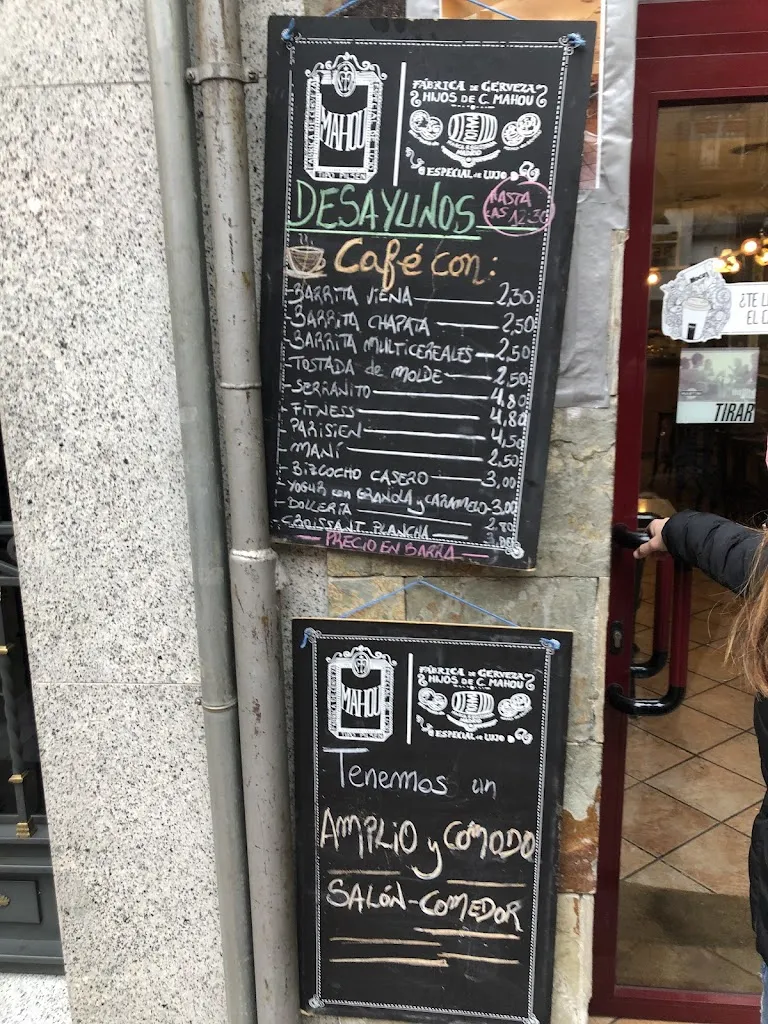 FÁBRICA DE CERVEZA
MAHOU
TIPO PILSEN
FÁBRICA DE CERVEZA
HIJOS DE C. MAHOU
MAHOU
MARCA REGISTRADA
MADRID
ESPECIAL DE LUJO
DESAYUNOS
HASTA
LAS 12:30
Café con:
-BARRITA VIENA 2,30
-BARRITA CHAPATA 2,50
-BARRITA MULTICEREALES 2,50
-TOSTADA de MOLDE 2,50
-SERRANITO 4,80
-FITNESS 4,80
-PARISIEN 4,50
-MANÍ 2,50
-BIZCOCHO CASERO 3,00
-YOGUR con GRANOLA y CARAMELO-3,00
-BOLLERÍA 2,80
-CROISSANT PLANCHA
-PRECIO EN BARRA-
FÁBRICA DE CERVEZA
MAHOU
TIPO PILSEN
FÁBRICA DE CERVEZA
HIJOS DE C. MAHOU
ESPECIAL DE LUJO
Tenemos un
AMPLIO y CÓMODO
SALÓN-COMEDOR
¿TE L
EL C
TIRAR